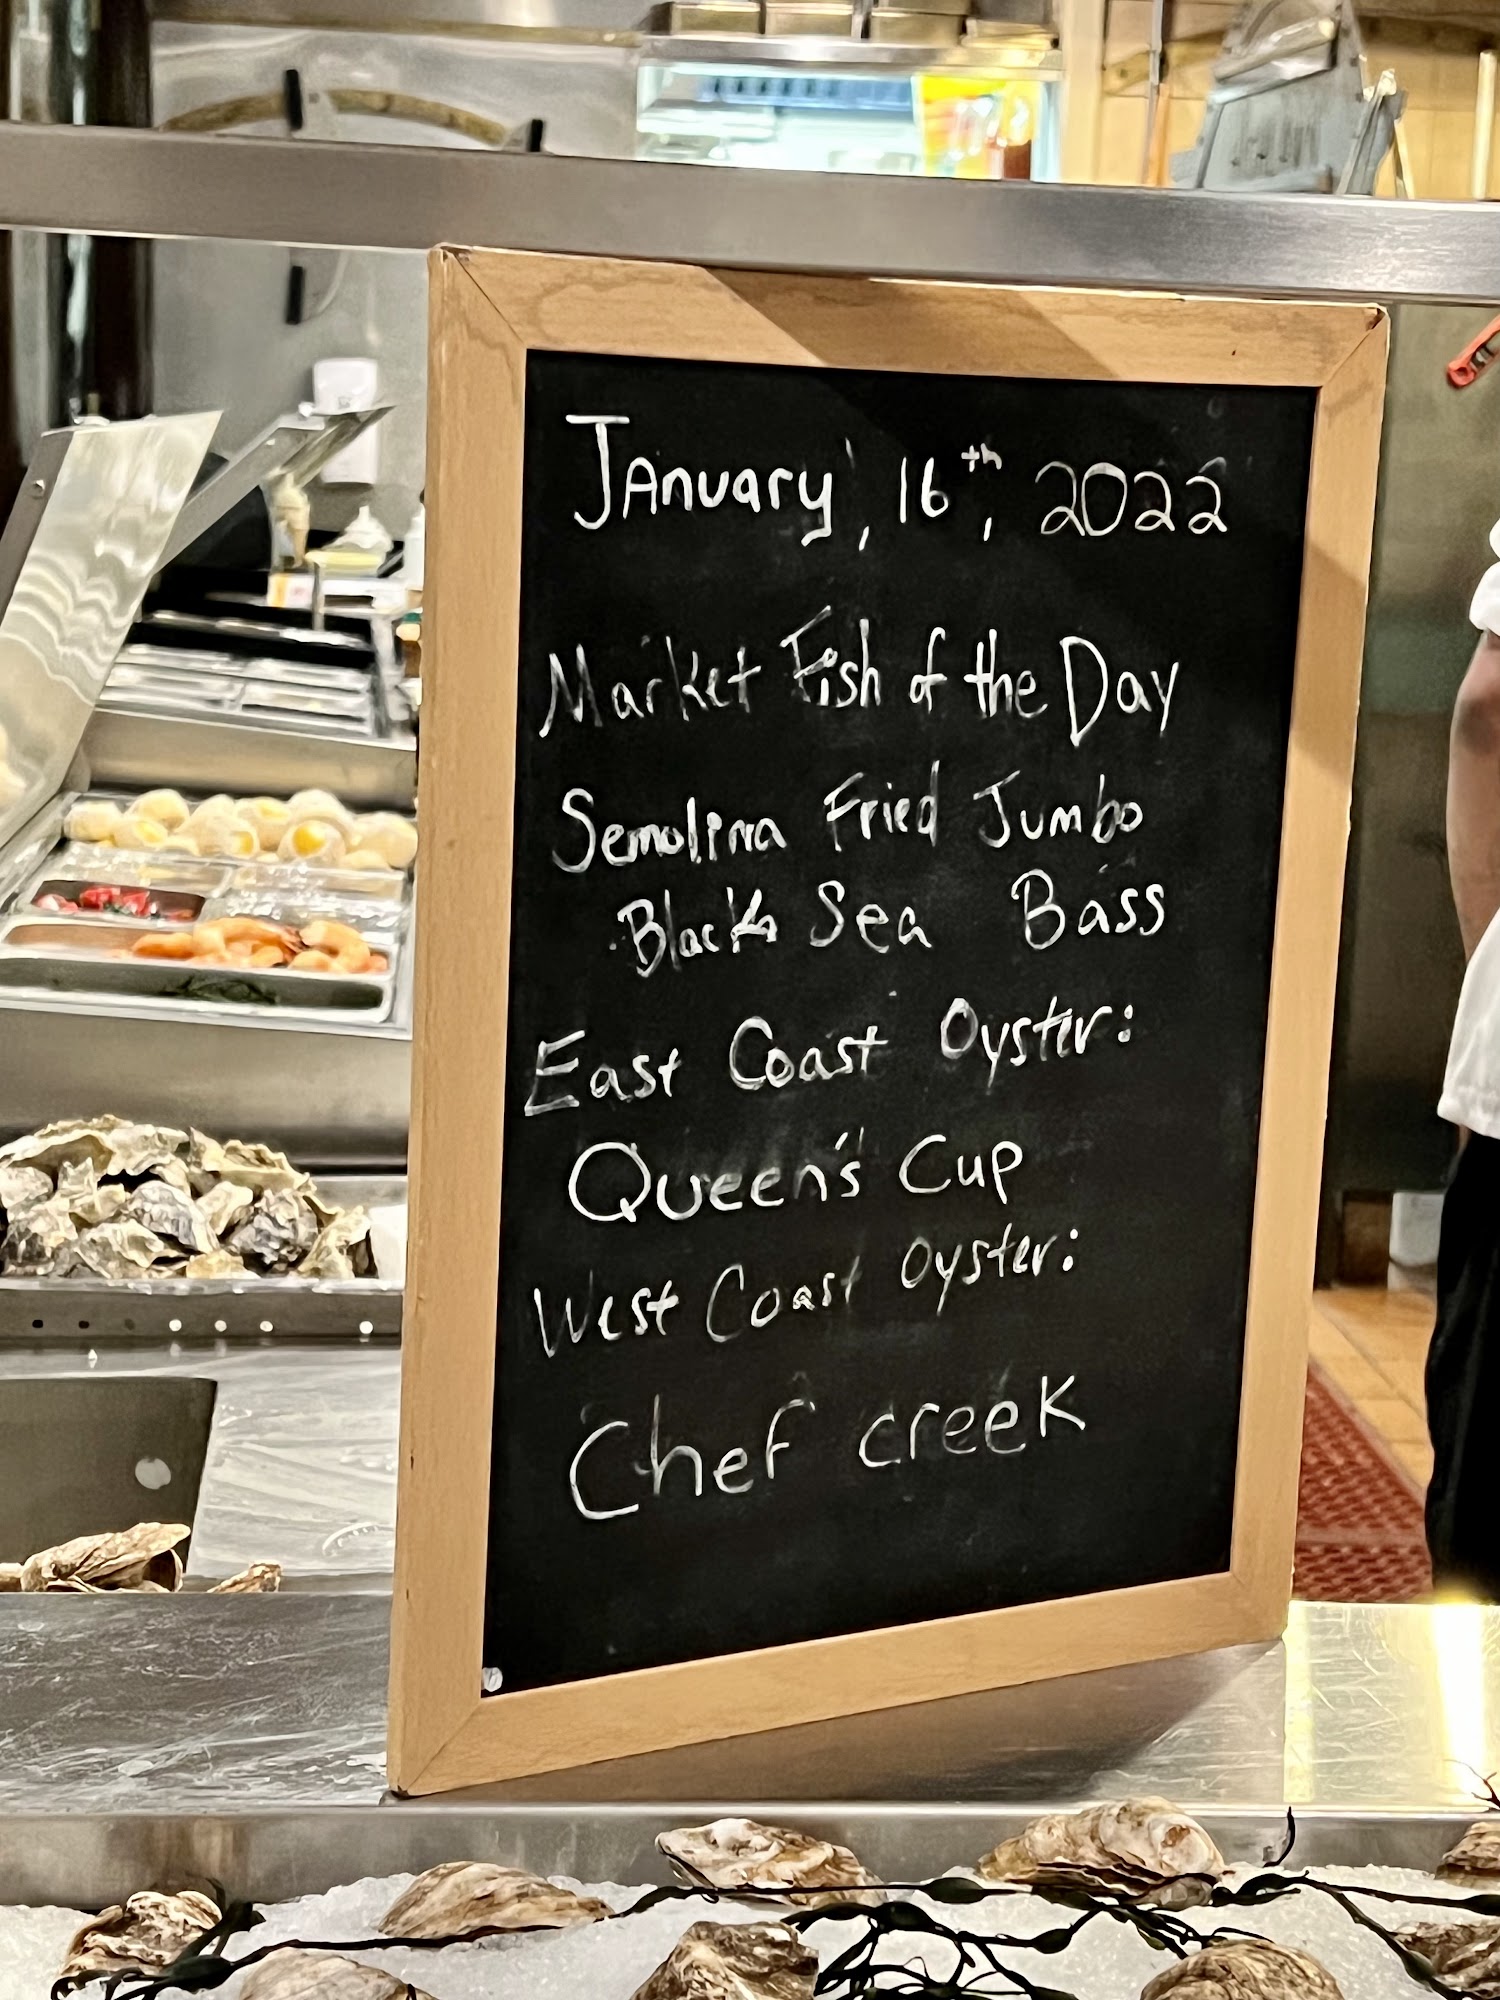 January, 16th, 2022
Market Fish of the Day
Semolina Fried Jumbo
Black Sea Bass
East Coast Oyster:
Queen's Cup
West Coast Oyster:
Chef creek